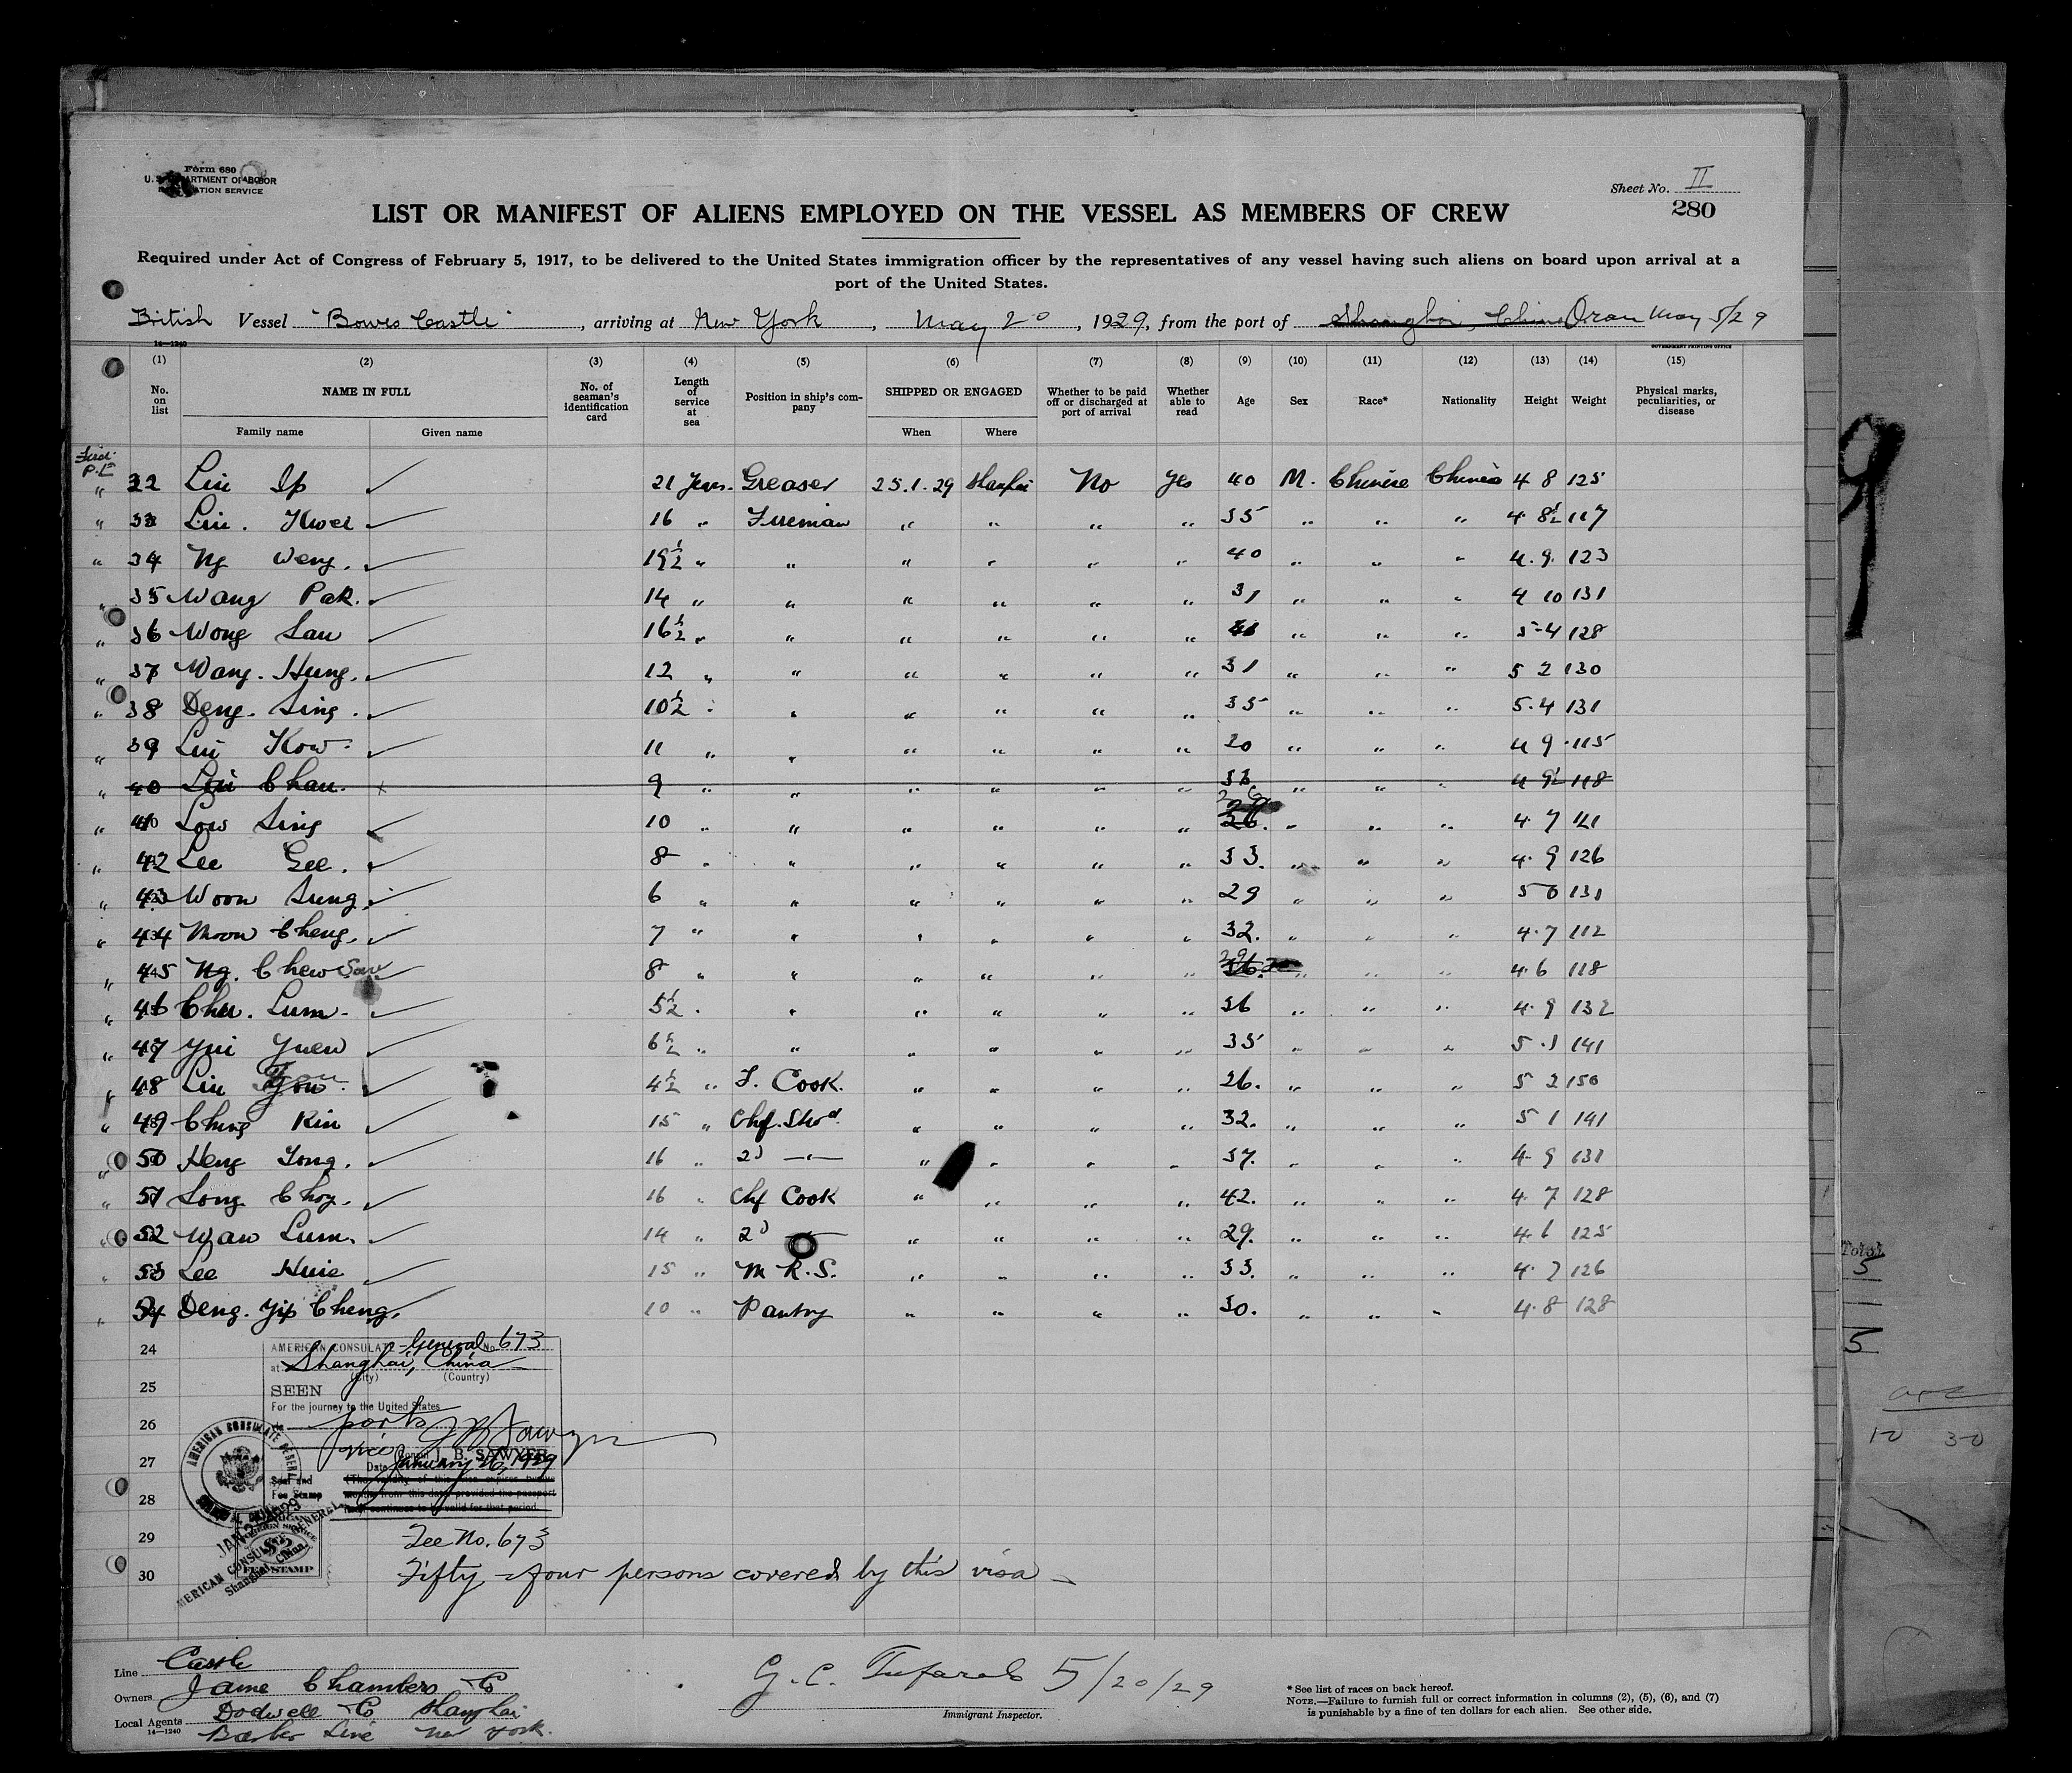 Form 680
U. S. DEPARTMENT OF LABOR
IMMIGRATION SERVICE
Sheet No. II
280
LIST OR MANIFEST OF ALIENS EMPLOYED ON THE VESSEL AS MEMBERS OF CREW
Required under Act of Congress of February 5, 1917, to be delivered to the United States immigration officer by the representatives of any vessel having such aliens on board upon arrival at a
port of the United States.
British Vessel "Bowes Castle", arriving at New York, May 20, 1929, from the port of Shanghai, China Oran May 5/29
14—1240 GOVERNMENT PRINTING OFFICE
(1) (2) (3) (4) (5) (6) (7) (8) (9) (10) (11) (12) (13) (14) (15)
No. on list NAME IN FULL Family name Given name No. of seaman's identification card Length of service at sea Position in ship's company SHIPPED OR ENGAGED When Where Whether to be paid off or discharged at port of arrival Whether able to read Age Sex Race* Nationality Height Weight Physical marks, peculiarities, or disease
" 32 Liu Ip ✓ 21 Years. Greaser 25.1.29 Shanghai No Yes 40 M. Chinese Chinese 4 8 125
" 33 Liu. Kwei ✓ 16 " Fireman " " " " 35 " " " 4. 8½ 117
" 34 Ng Weng. ✓ 19½ " " " " " " 40 " " " 4. 9. 123
" 35 Wang Pak. ✓ 14 " " " " " " 31 " " " 4 10 131
" 36 Wong Sau ✓ 16½ " " " " " " 41 " " " 5-4 128
" 37 Wang. Hung. ✓ 12 " " " " " " 31 " " " 5 2 130
" 38 Deng. Sing. ✓ 10½ " " " " " " 35 " " " 5.4 131
" 39 Liu Kow ✓ 11 " " " " " " 20 " " " 4 9 115
" 40 Liu Chau. x 9 " " " " " " " " " 4 9½ 118
" 41 Low Sing ✓ 10 " " " " " " " " " 4. 7 121
" 42 Lee Gee. ✓ 8 " " " " " " 33. " " " 4. 9 126
" 43 Woon Sung. ✓ 6 " " " " " " 29 " " " 5 0 131
" 44 Moon Cheng. ✓ 7 " " " " " " 32. " " " 4.7 112
" 45 Ng. Chew Sow ✓ 8 " " " " " " 29 " " " 4.6 118
" 46 Chu. Lum. ✓ 5½ " " " " " " 36 " " " 4. 9 132
" 47 Yui Yuen ✓ 6½ " " " " " " 35 " " " 5.1 141
" 48 Liu ✓ 4½ " F. Cook. " " " " 26. " " " 5 2 150
" 49 Ching Kin ✓ 15 " Chf. Stwd. " " " " 32. " " " 5 1 141
" 50 Heng Yong. ✓ 16 " 2d —"— " " " " 37. " " " 4. 9 131
" 51 Song Choy. ✓ 16 " Chf Cook " " " " 42. " " " 4. 7 128
" 52 Wan Lum. ✓ 14 " 2d —"— " " " " 29. " " " 4.6 125
" 53 Lee Huie ✓ 15 " M. R. S. " " " " 33. " " " 4. 7 126
" 54 Deng. Yip Cheng. 10 " Pantry " " " " 30. " " " 4.8 128
24
25
26
27
28
29
30
AMERICAN CONSULATE-General No. 673
at Shanghai, China
(City) (Country)
SEEN
For the journey to the United States
ports
Vice Consul J. B. SAWYER
Date January 26, 1929
Seal and
Fee Stamp
AMERICAN CONSULATE GENERAL
Shanghai, China.
FEE STAMP
Fee No. 673
Fifty-four persons covered by this visa
Line Castle
Owners Jame Chambers Co
Local Agents Dodwell Co Shanghai
14—1240 Barber Line New York.
G. C. Tufarolo 5/20/29
Immigrant Inspector.
* See list of races on back hereof.
NOTE.—Failure to furnish full or correct information in columns (2), (5), (6), and (7)
is punishable by a fine of ten dollars for each alien. See other side.
Total
5
5
10 30